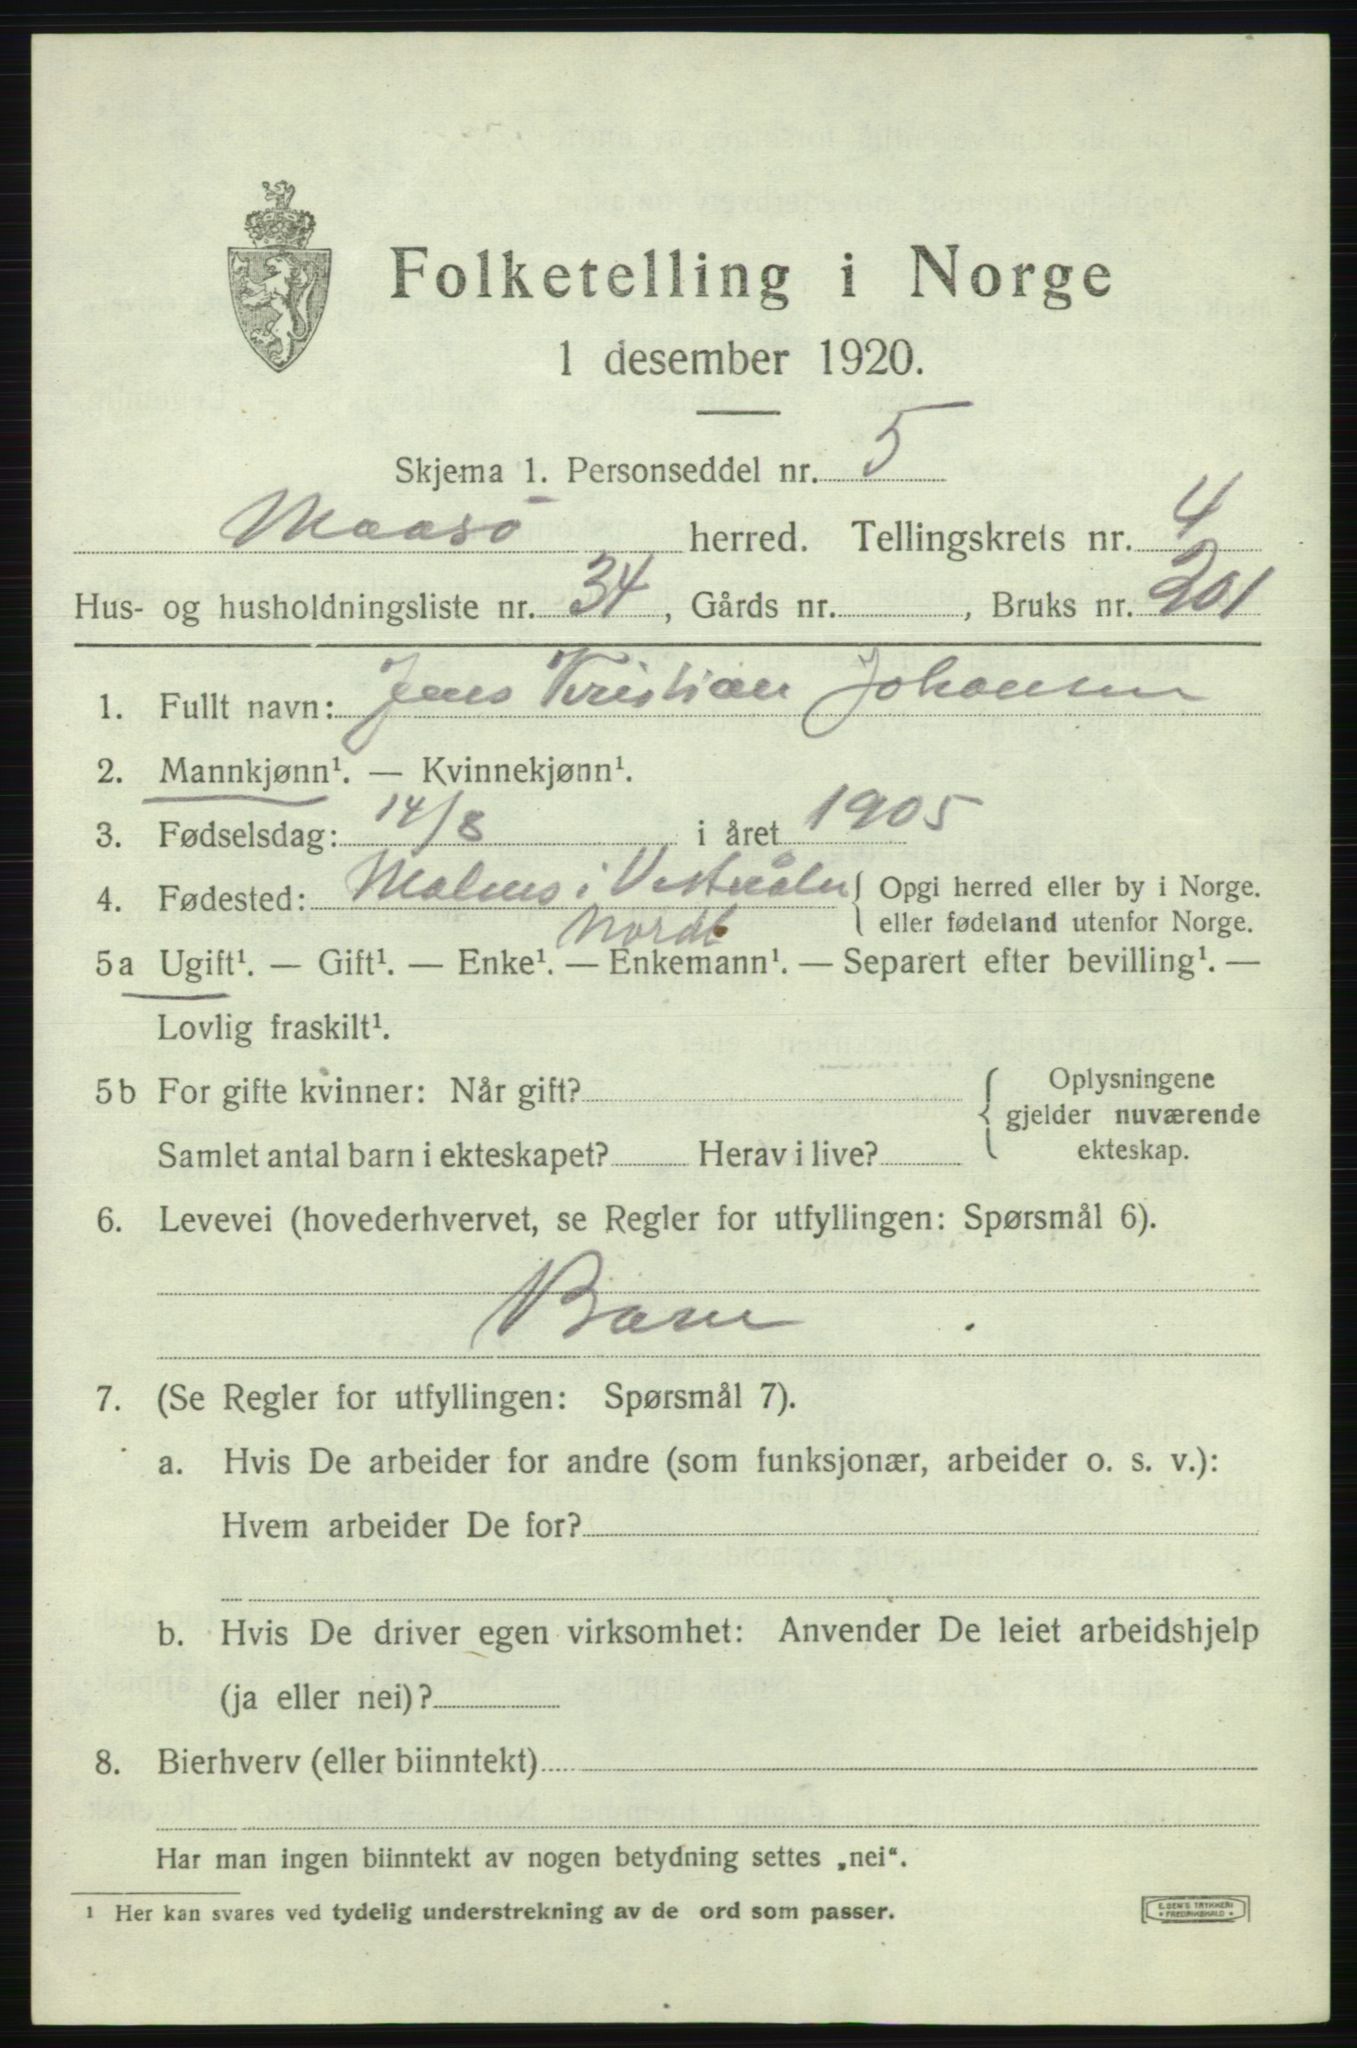 Folketelling i Norge
1 desember 1920.
Skjema 1. Personseddel nr. 5
Maasö herred. Tellingskrets nr. 4
Hus- og husholdningsliste nr. 34, Gårds nr. , Bruks nr. 201
1. Fullt navn: Jens Kristian Johansen
2. Mannkjønn¹. — Kvinnekjønn¹.
3. Fødselsdag: 14/8 i året 1905
4. Fødested: Melnes i Vesterålen { Opgi herred eller by i Norge.
Nordl eller fødeland utenfor Norge.
5a Ugift¹. — Gift¹. — Enke¹. — Enkemann¹. — Separert efter bevilling¹. —
Lovlig fraskilt¹.
5b For gifte kvinner: Når gift? { Oplysningene
gjelder nuværende
Samlet antal barn i ekteskapet? Herav i live? ekteskap.
6. Levevei (hovederhvervet, se Regler for utfyllingen: Spørsmål 6).
Barn
7. (Se Regler for utfyllingen: Spørsmål 7).
a. Hvis De arbeider for andre (som funksjonær, arbeider o. s. v.):
Hvem arbeider De for?
b. Hvis De driver egen virksomhet: Anvender De leiet arbeidshjelp
(ja eller nei)?
8. Bierhverv (eller biinntekt)
Har man ingen biinntekt av nogen betydning settes „nei“.
¹ Her kan svares ved tydelig understrekning av de ord som passer.
E. SEM'S TRYKKERI
FREDRIKSHALD